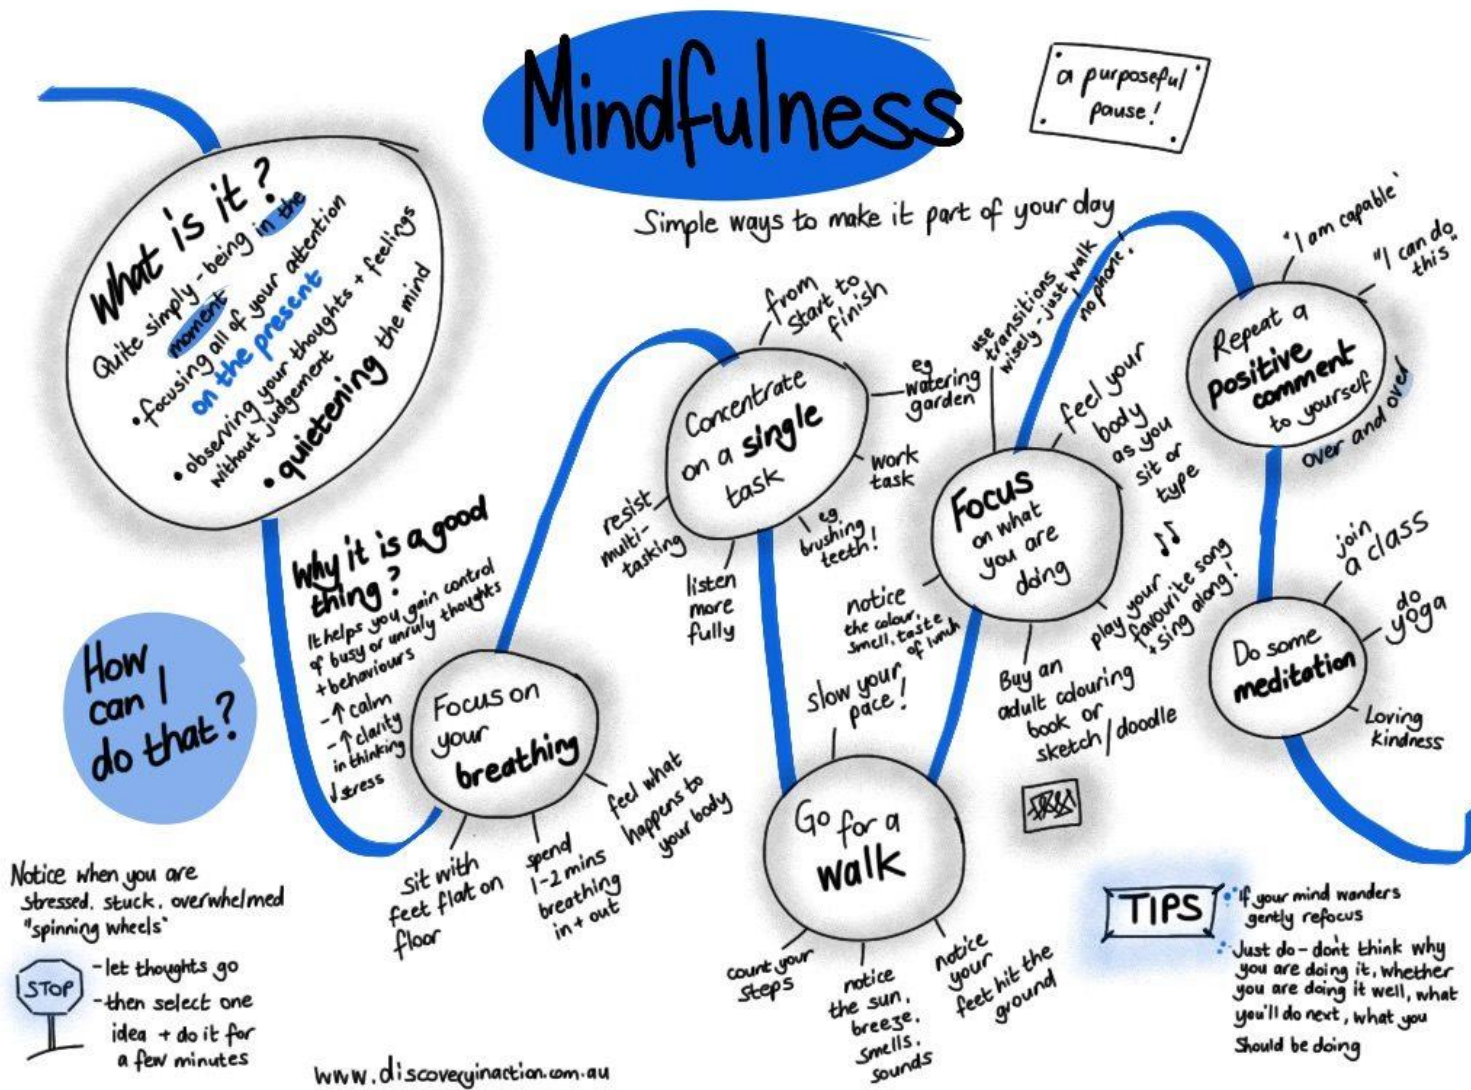 Mindfulness
a purposeful
pause!
Simple ways to make it part of your day
What is it?
Quite simply - being in the
moment
• focusing all of your attention
on the present
• observing your thoughts + feelings
without judgement
• quietening the mind
Why it is a good
thing?
It helps you gain control
of busy or unruly thoughts
+ behaviours
- ↑ calm
- ↑ clarity
in thinking
↓ stress
How
can I
do that?
Notice when you are
stressed, stuck, overwhelmed
"spinning wheels"
STOP
- let thoughts go
- then select one
idea + do it for
a few minutes
Focus on
your
breathing
sit with
feet flat on
floor
spend
1-2 mins
breathing
in + out
feel what
happens to
your body
Concentrate
on a single
task
from
start to
finish
eg
watering
garden
work
task
eg
brushing
teeth!
listen
more
fully
resist
multi-
tasking
Go for a
walk
slow your
pace!
count your
steps
notice
the sun,
breeze,
smells,
sounds
notice
your
feet hit the
ground
Focus
on what
you are
doing
use
transitions
wisely - just walk
no phone!
feel your
body
as you
sit or
type
play your
favourite song
+ sing along!
Buy an
adult colouring
book or
sketch / doodle
notice
the colour,
smell, taste
of lunch
Repeat a
positive
comment
to yourself
over and over
"I am capable"
"I can do
this"
Do some
meditation
join
a class
do
yoga
Loving
kindness
TIPS
• If your mind wanders
gently refocus
• Just do - don't think why
you are doing it, whether
you are doing it well, what
you'll do next, what you
should be doing
www.discoveryinaction.com.au